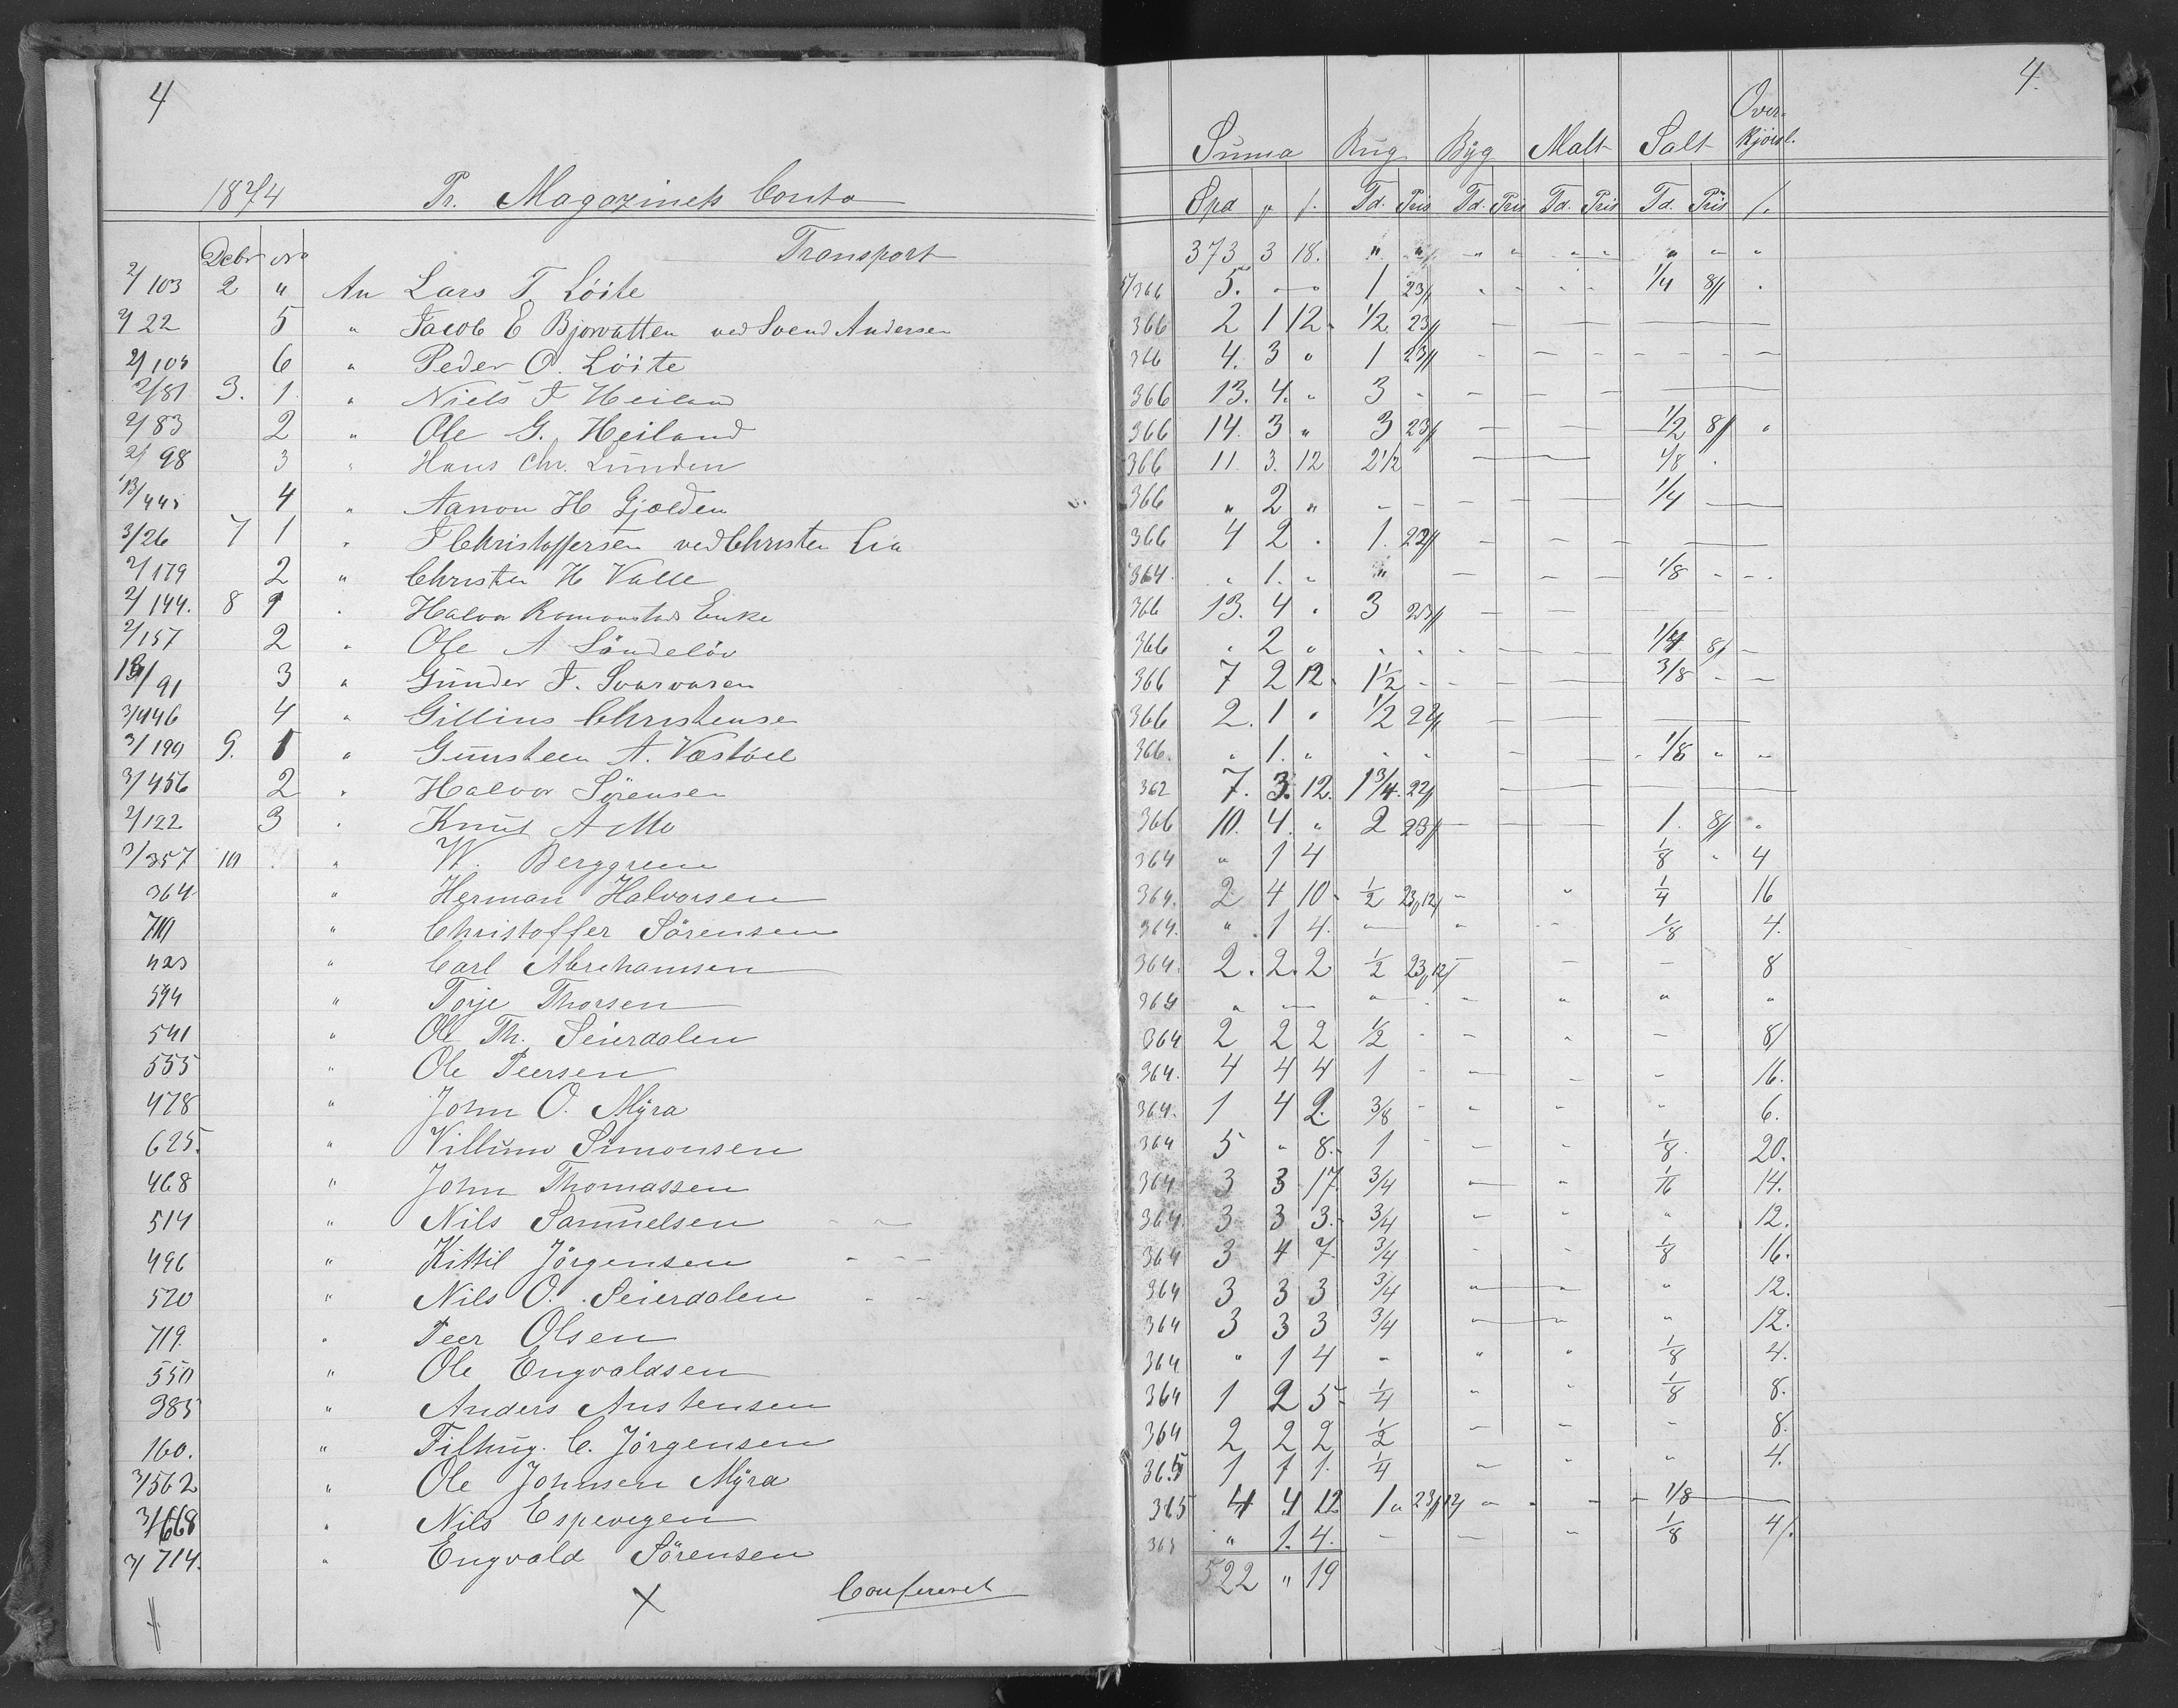 4
1874 Pr. Magazinets Conto
Debr No Transport
2/103 2 " An Lars T. Löite
2/22 5 " Jacob E Bjorvatten ved Svend Andersen
2/103 6 " Peder O. Löite
2/81 3. 1. " Niels T Heiland
2/83 2 " Ole G. Heiland
2/98 3 " Hans Chr. Lunden
13/445 4 " Aanon H Gjelden
3/26 7 1 " T Christoffersen ved Christen Lia
2/179 2 " Christen H Valle
2/144. 8 1 " Halvor Romonstads Enke
2/157 2 " Ole A Söndelöv
13/91 3 " Gunder T. Svarvaren
3/446 4 " Gillius Christense
3/190 9. 1 " Gunsteen A. Vestöll
3/456 2 " Halvor Sörensen
2/122 3 " Knut A Mo
3/357 10 " W. Berggreen
364 " Herman Halvorsen
710 " Christoffer Sörensen
423 " Carl Abrehamsen
594 " Torje Thorsen
541 " Ole Th. Seierdalen
555 " Ole Peersen
478 " John O. Myra
625. " Villum Simonsen
468 " John Thomassen
514 " Nils Samuelsen
496 " Kittil Jörgensen
520 " Nils O. Seierdalen
719. " Peer Olsen
550 " Ole Engvaldsen
385 " Anders Austensen
160. " Filhug. C. Jörgensen
3/562 " Ole Johnsen Myra
3/668 " Nils Espevegen
3/714. " Engvald Sörensen
X Confereret
4.
Suma Rug Byg Malt Salt Over-kjörsl.
Spd Td. Pris Td. Pris Td. Pris Td. Pris
373 3 18. " " " " " " " " "
5/366 5. — " 1 23 " " " " 1/4 8 "
366 2 1 12 1/2 23 — — —
366 4. 3 " 1 23 — — —
366 13. 4. " 3 " — — —
366 14. 3 " 3 23 — — 1/2 8 "
366 11. 3. 12 2 1/2 " — 1/8 "
366 " 2 " — — — 1/4 —
366 4 2 " 1. 22 — — —
364. " 1. " " — — 1/8 " —
366 13. 4 " 3 23 — — —
366 " 2 " " " — — 1/4 8 —
366 7 2 12 1 1/2 — — — 3/8 — —
366 2. 1 " 1/2 22 — — —
366. " 1. " " " — — 1/8 " "
362 7. 3. 12. 1 3/4. 22 — — —
366 10. 4. " 2 23 — — 1. 8 "
364 " 1 4 1/8 " 4
364. 2 4 10 1/2 23,12 " " 1/4 16
364. " 1 4. — " — 1/8 4.
364. 2. 2. 2 1/2 23,12 — — 8
364 " — " " " " "
364 2 2 2 1/2 — " — 8
364. 4 4 4 1 — — — 16.
364. 1 4 2. 3/8 " " " 6.
364 5 " 8. 1 — — 1/8. 20.
364 3 3 17. 3/4 " " 1/16 14.
364. 3 3 3. 3/4 " " " 12.
364 3 4 7 3/4 " " 1/8 16.
364 3 3 3 3/4 " " " 12.
364 3 3 3 3/4 " " " 12.
364 " 1 4 " " " 1/8 4.
364 1 2 5 1/4 " " 1/8 8.
364 2 2 2 1/2 — — — 8.
365 1 1 1. 1/4 " " " 4.
365 4 4 12 1 23,12 " " 1/8 —
365 " 1. 4. — — " 1/8 4
522 " 19